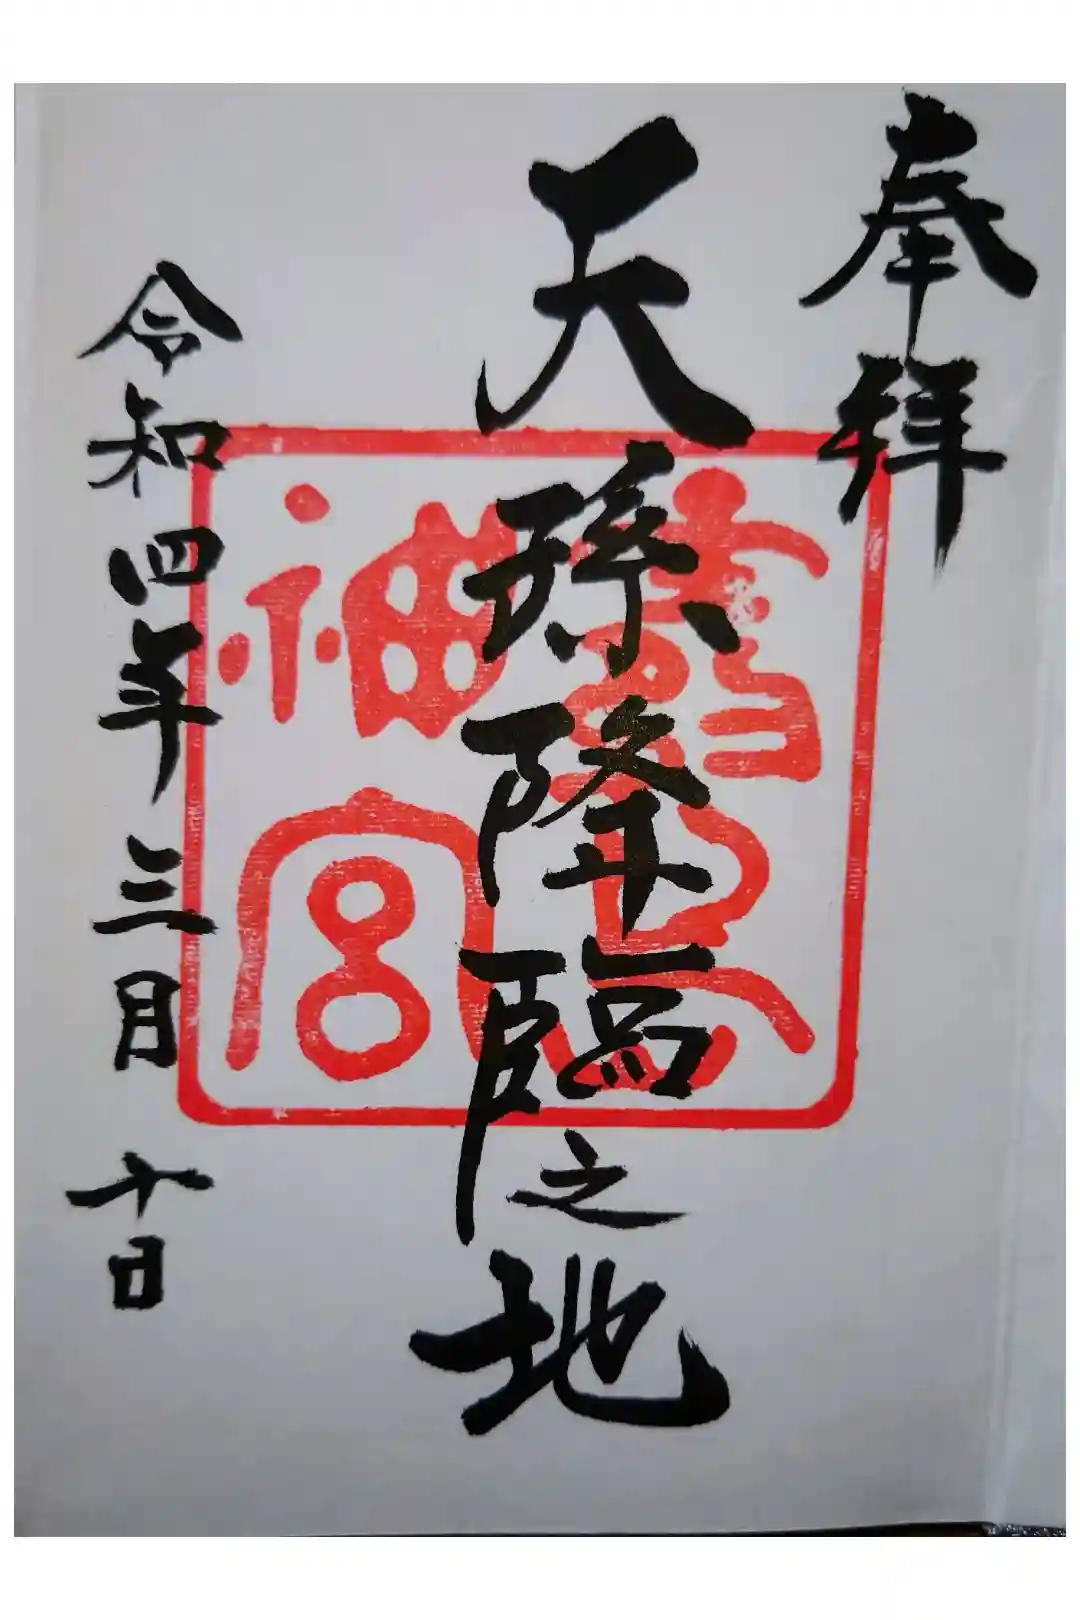 奉拝
天孫降臨之地
霧島神宮
令和四年三月十日